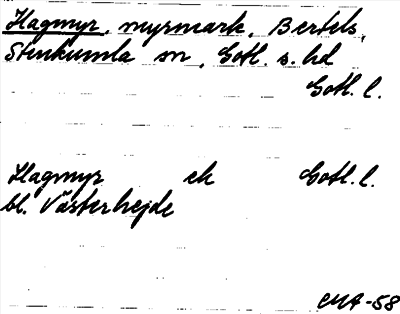 Hagmyr, myrmark, Bertels,
Stenkumla sn, Gotl. s. hd
Gotl. l.
Hagmyr ek Gotl. l.
bl. Västerhejde
CMA-58